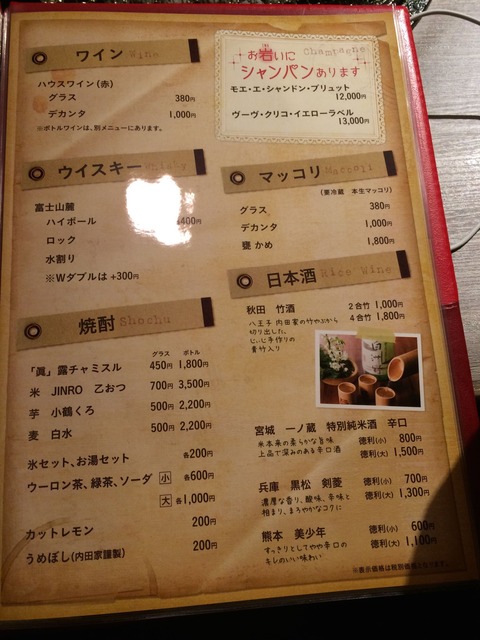 ワイン Wine
ハウスワイン(赤)
グラス 380円
デカンタ 1,000円
※ボトルワインは、別メニューにあります。
Champagne
お祝いに
シャンパンあります
モエ・エ・シャンドン・ブリュット
12,000円
ヴーヴ・クリコ・イエローラベル
13,000円
ウイスキー Whisky
富士山麓
ハイボール 各400円
ロック
水割り
※Wダブルは +300円
マッコリ Maccoli
(要冷蔵 本生マッコリ)
グラス 380円
デカンタ 1,000円
甕 かめ 1,800円
焼酎 Shochu
グラス ボトル
「眞」露チャミスル 450円 1,800円
米 JINRO 乙おつ 700円 3,500円
芋 小鶴くろ 500円 2,200円
麦 白水 500円 2,200円
氷セット、お湯セット 各200円
ウーロン茶、緑茶、ソーダ 小 各600円
大 各1,000円
カットレモン 200円
うめぼし(内田家謹製) 200円
日本酒 Rice Wine
秋田 竹酒 2合竹 1,000円
4合竹 1,800円
八王子 内田家の竹やぶから
切り出した、
心・心手作りの
青竹入り
宮城 一ノ蔵 特別純米酒 辛口
米本来の柔らかな旨味 徳利(小) 800円
上品で深みのある辛口酒 徳利(大) 1,500円
兵庫 黒松 剣菱 徳利(小) 700円
濃厚な香り、酸味、辛味と 徳利(大) 1,300円
相まり、まろやかなコクに
熊本 美少年 徳利(小) 600円
すっきりとしてやや辛口の 徳利(大) 1,100円
キレのいい味わい
※表示価格は税別価格となります。